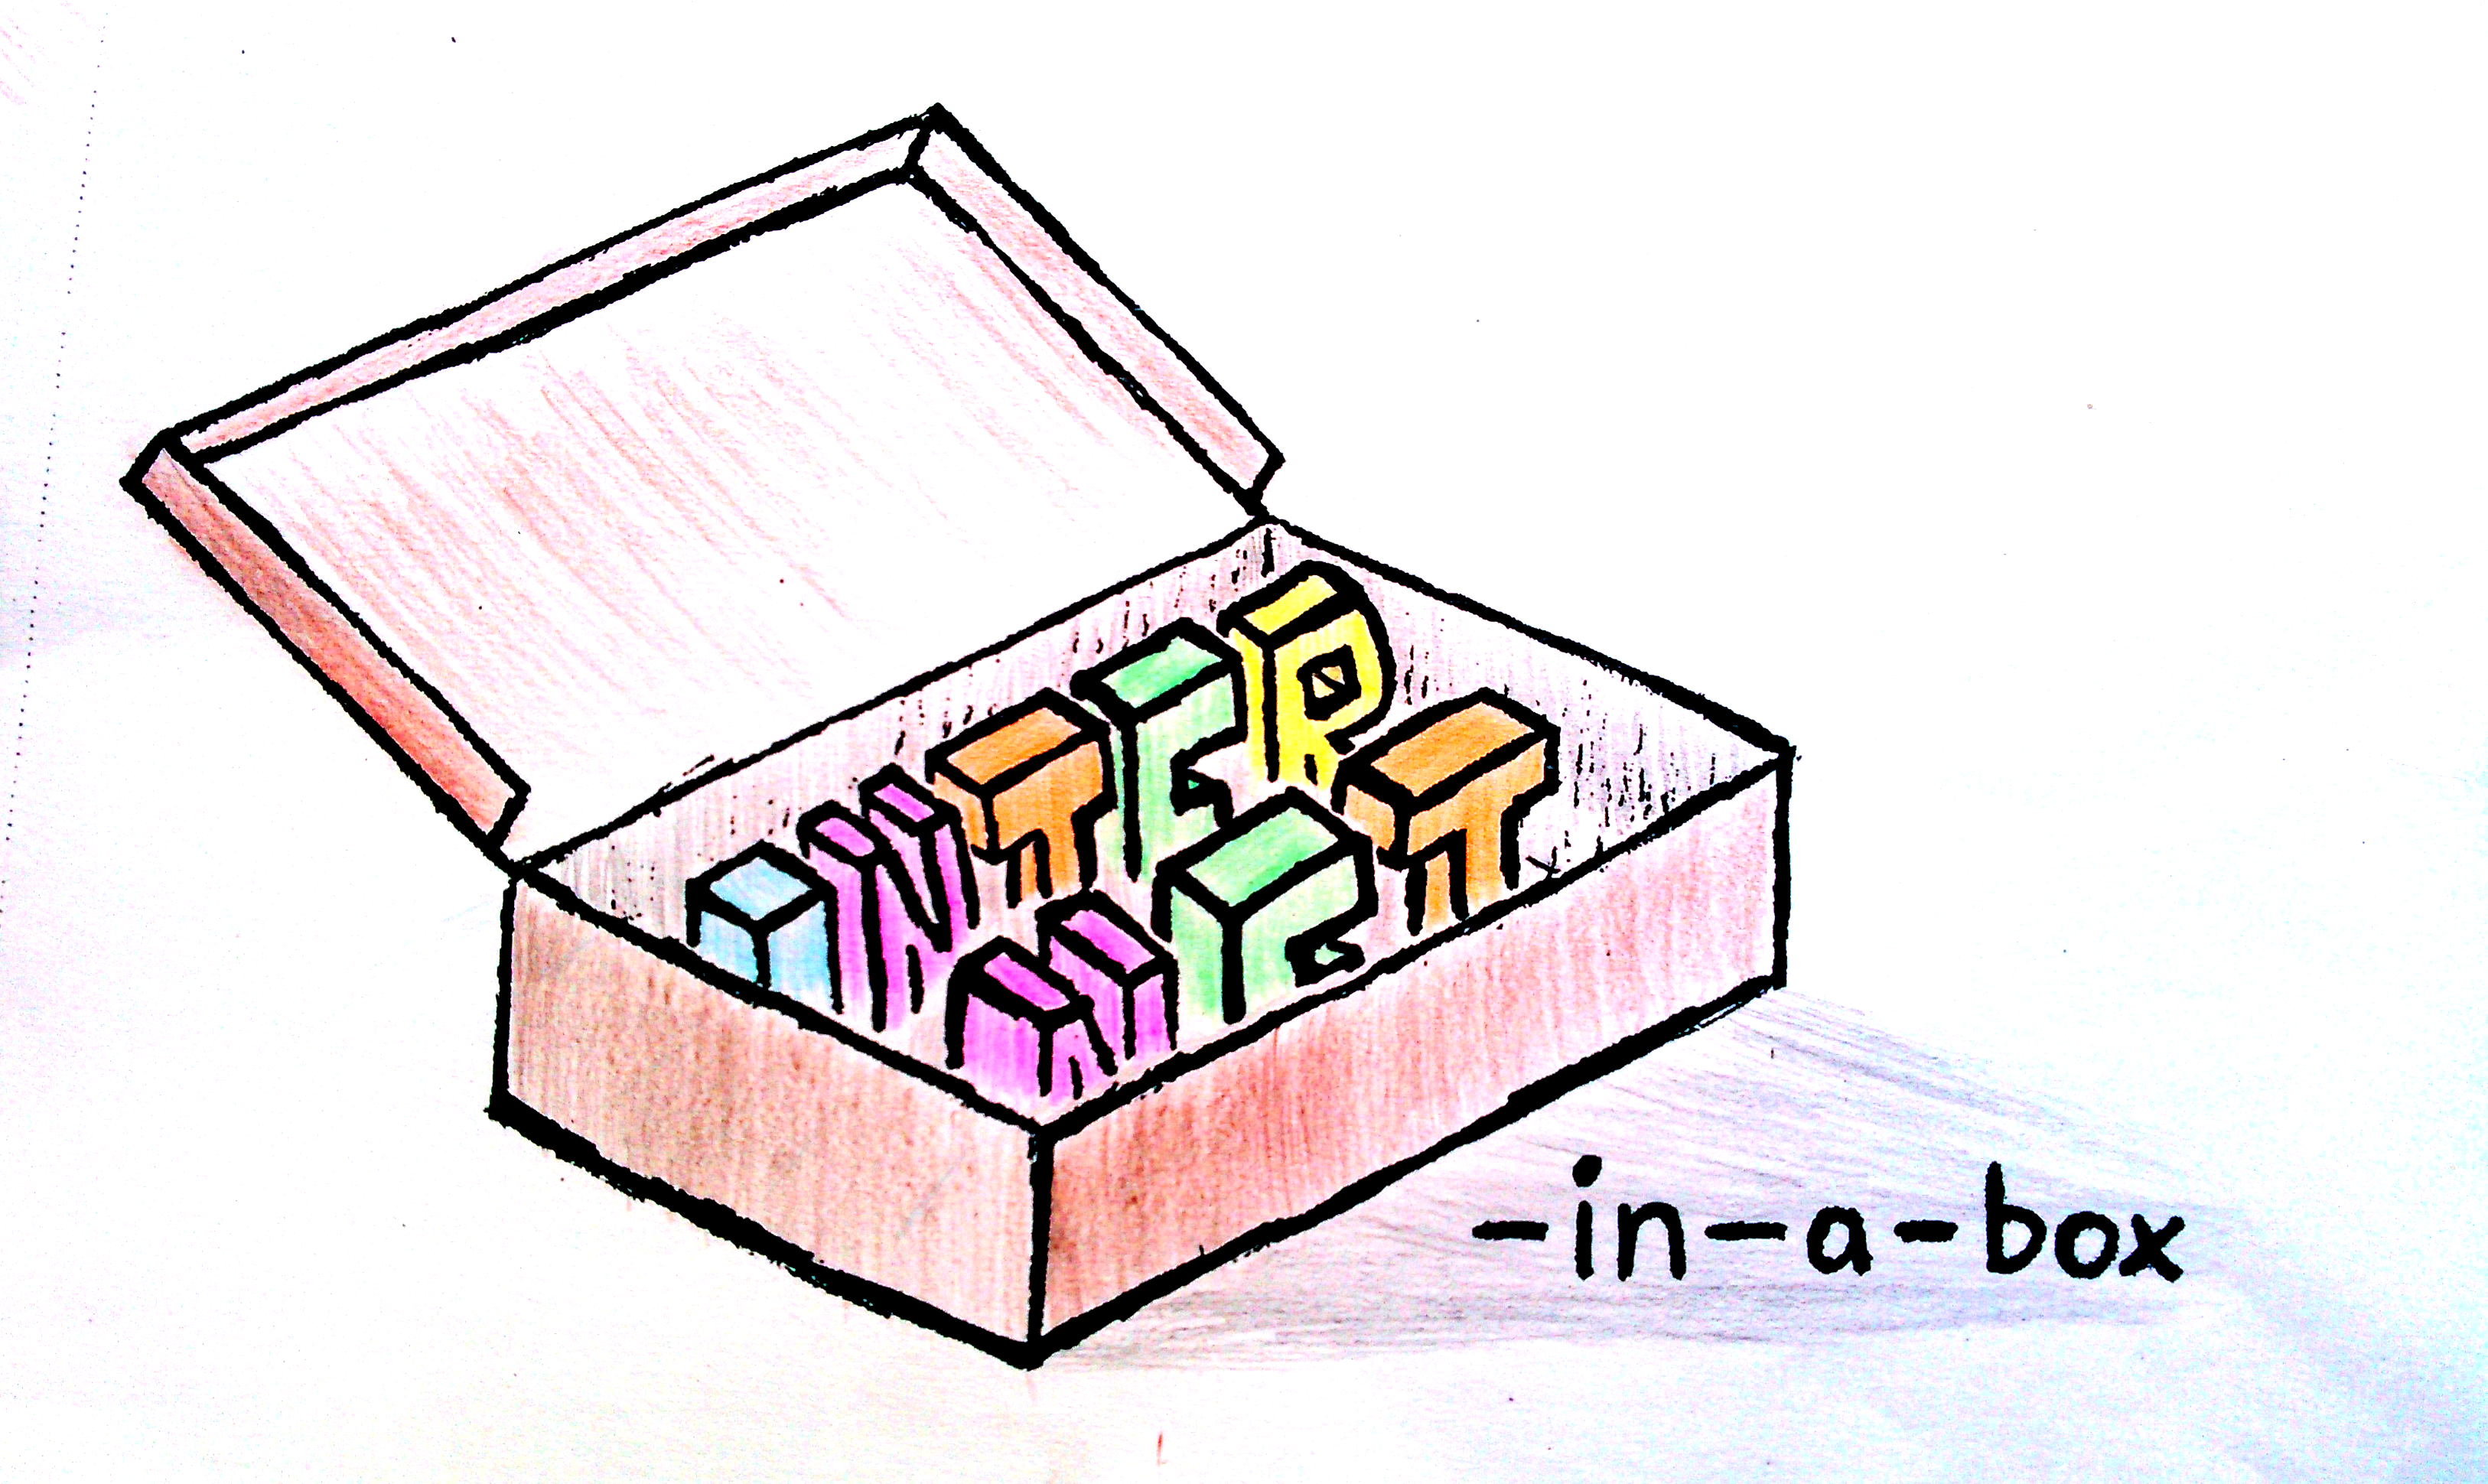 INTER
NET
-in-a-box